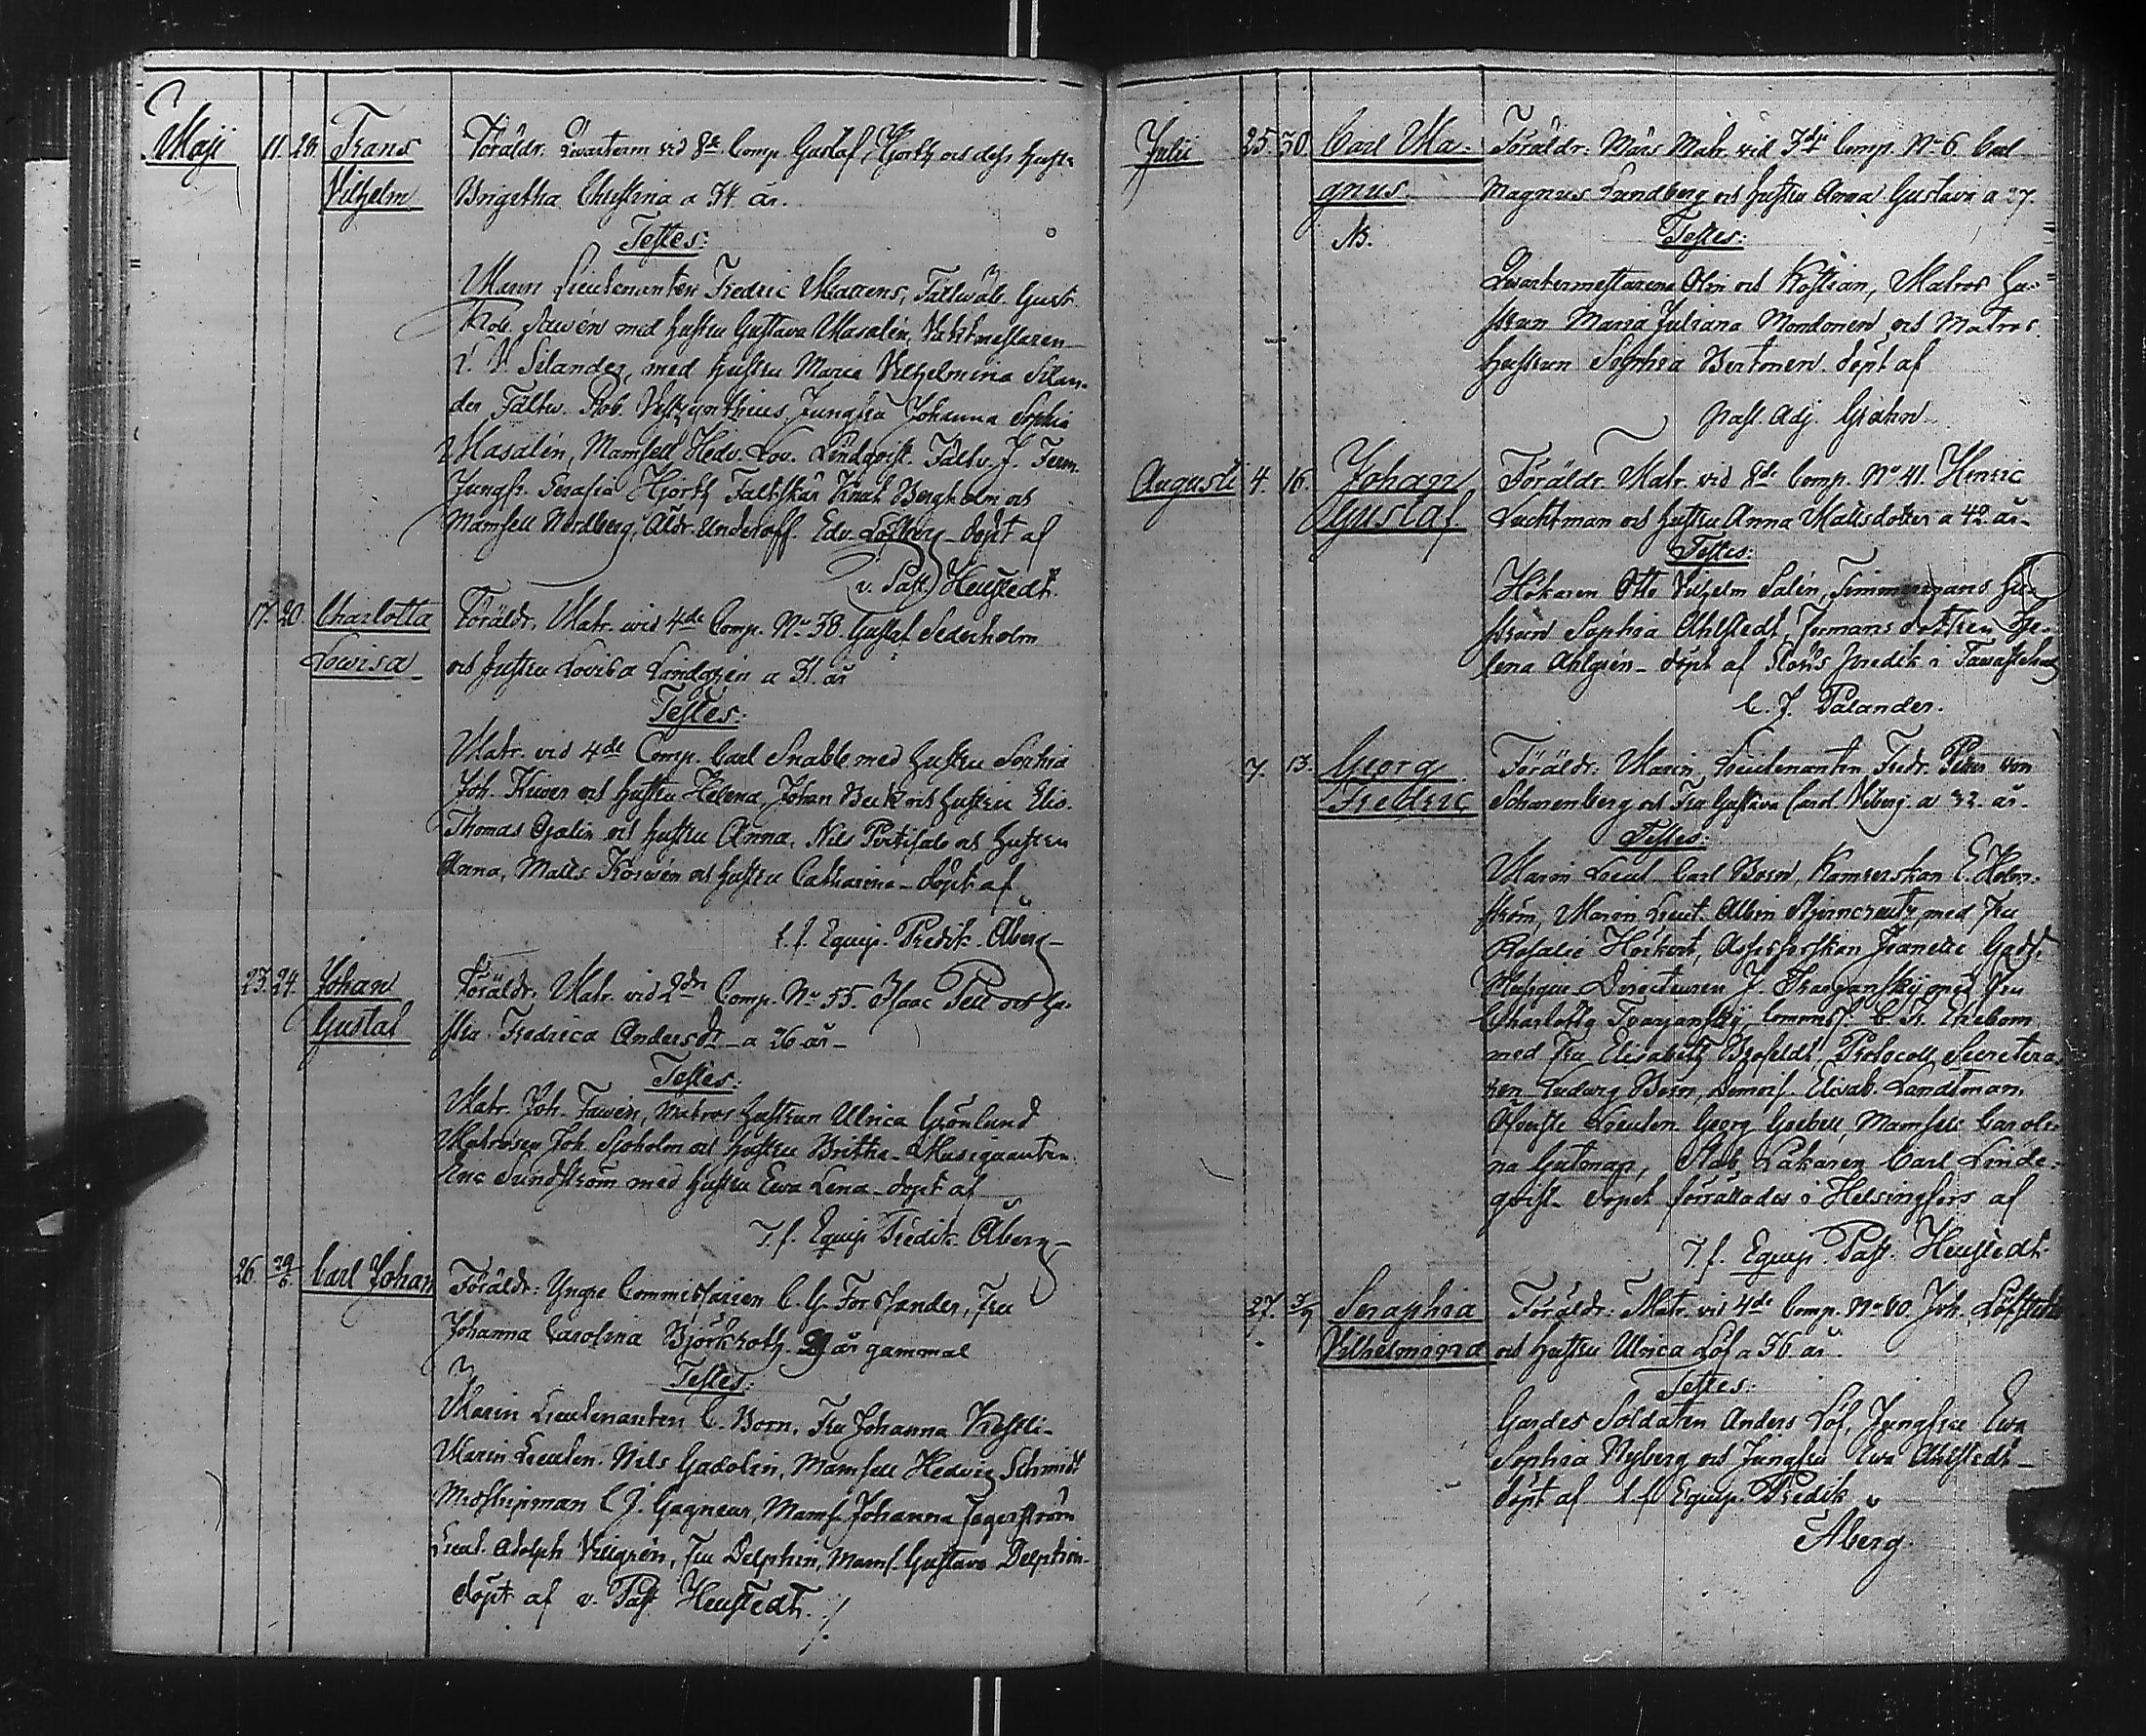 Maji 11. 20. Frans Föräldr. Qvarterm vid 8de Comp. Gustaf Hjorth och dess hustr
Vilhelm Brigitha Christina a 34 år.
Testes:
Marin Lieutenanten Fredric Martens, Fältwäb. Gust.
Rob. Sawén med hustru Gustava Masalén, Vaktmestaren
Silander, med hustru Maria Vilhelmina Silan-
der Fältw. Rob. Jungfru Johanna Sophia
Masalén, Mamsell Hedv. Lov. Lindqvist. Fältw. J. Ferm.
Jungfr. Serafia Hjorth Fältskär Knut Bergholm och
Mamsell Nordberg, Äldr. Underoff. Edv. Löfberg döpt af
v. Past. Heustedt.
17. 20. Charlotta Föräldr. Matr. wid 4de Comp. No 38. Gustaf Sederholm
Lowisa och hustru Lovisa Lindgrén a 31. år
Testes:
Matr. vid 4de Comp. Carl Snabb med hustru Sophia
Joh. Kuwer och hustru Helena, Johan Beck och hustru Elis.
Thomas och hustru Anna, Nils och hustru
Anna, Matts Korwén och hustru Catharina döpt af
t. f. Equip. Predik. Åberg
23. 24. Johan Föräldr. Matr. vid 2dra Comp. No 55. Isaac Pell och hu-
Gustaf stru Fredrica Andersdr a 26 år
Testes:
Matr. Joh. Fawén, Matros hustrun Ulrica Grönlund
Matrosen Joh. Sjoholm och hustru Britha Musiquanten
Sundström med hustru Ewa Lena döpt af
T. f. Equip Predik. Åberg
26. 29/6 Carl Johan Föräldr: Yngre Commissarien C. G. Forssander, Fru
Johanna Carolina Björkroth 29 år gammal
Testes:
Marin Lieutenanten C. Born, Fru Johanna
Marin Lieuten. Nils Gadolin, Mamsell Hedvig Schmidt
Midshipman C J. Gagneur, Mams. Johanna Jagerström
Lieut. Adolph Villgrén, Fru Delphin, Mams. Gustava Delphin
döpt af v. Past Heustedt.
Julii 25. 30. Carl Ma- Föräldr: Mars Matr. vid 3dje Comp. No 6 Carl
gnus. Magnus Lundberg och hustru Anna Gustava a 27.
NB. Testes:
Qvartermestarena Olin och Matros hu-
strun Maria Juliana Mondonen och Matros
hustrun Sophia Bertonen. döpt af
Past. Adj. Grahn
Augusti 4. 16. Johan Föräldr. Matr. vid 8de Comp. No 41. Henric
Gustaf Lucktman och hustru Anna Mattsdotter a 42 år
Testes:
Hökaren Otto Vilhelm Salén, Timmermans hu-
strun Sophia Ahlstedt, dottren He-
lena Ahlgrén döpt af Predik. i
C. J. Palander.
7. 13. Georg Föräldr. Marin Lieutenanten Fredr. Peter von
Fredric Scharenberg och Fru Gustava Carol. Viberg a 32. år
Testes:
Marin Lieut Carl Born, E. Holm-
ström, Marin Lieut. Albin Stjerncreutz med Fru
Rosalie Jeanette
Musique Directeuren J. med Fru
Charlotta C. Ekebom
med Fru Elisabeth Brofeldt, Protocolls Secretera-
ren Ludwig Born, Demois. Elisab. Landtman
Öfverste Lieuten. Georg Goebell, Mamsell Caroli-
na Gutman, Stab Läkaren Carl Linde-
qvist dopet förrättades i Helsingfors af
T. f. Equip. Past. Heustedt
27. Seraphia Föräldr: Matr. vid 4de Comp. No 80. Joh.
Vilhelmina och hustru Ulrica Löf a 36. år.
Testes:
Gardes Soldaten Anders Löf, Jungfru Ewa
Sophia Nyberg och Jungfru Ewa Ahlstedt
döpt af t. f. Equip. Predik
Åberg.